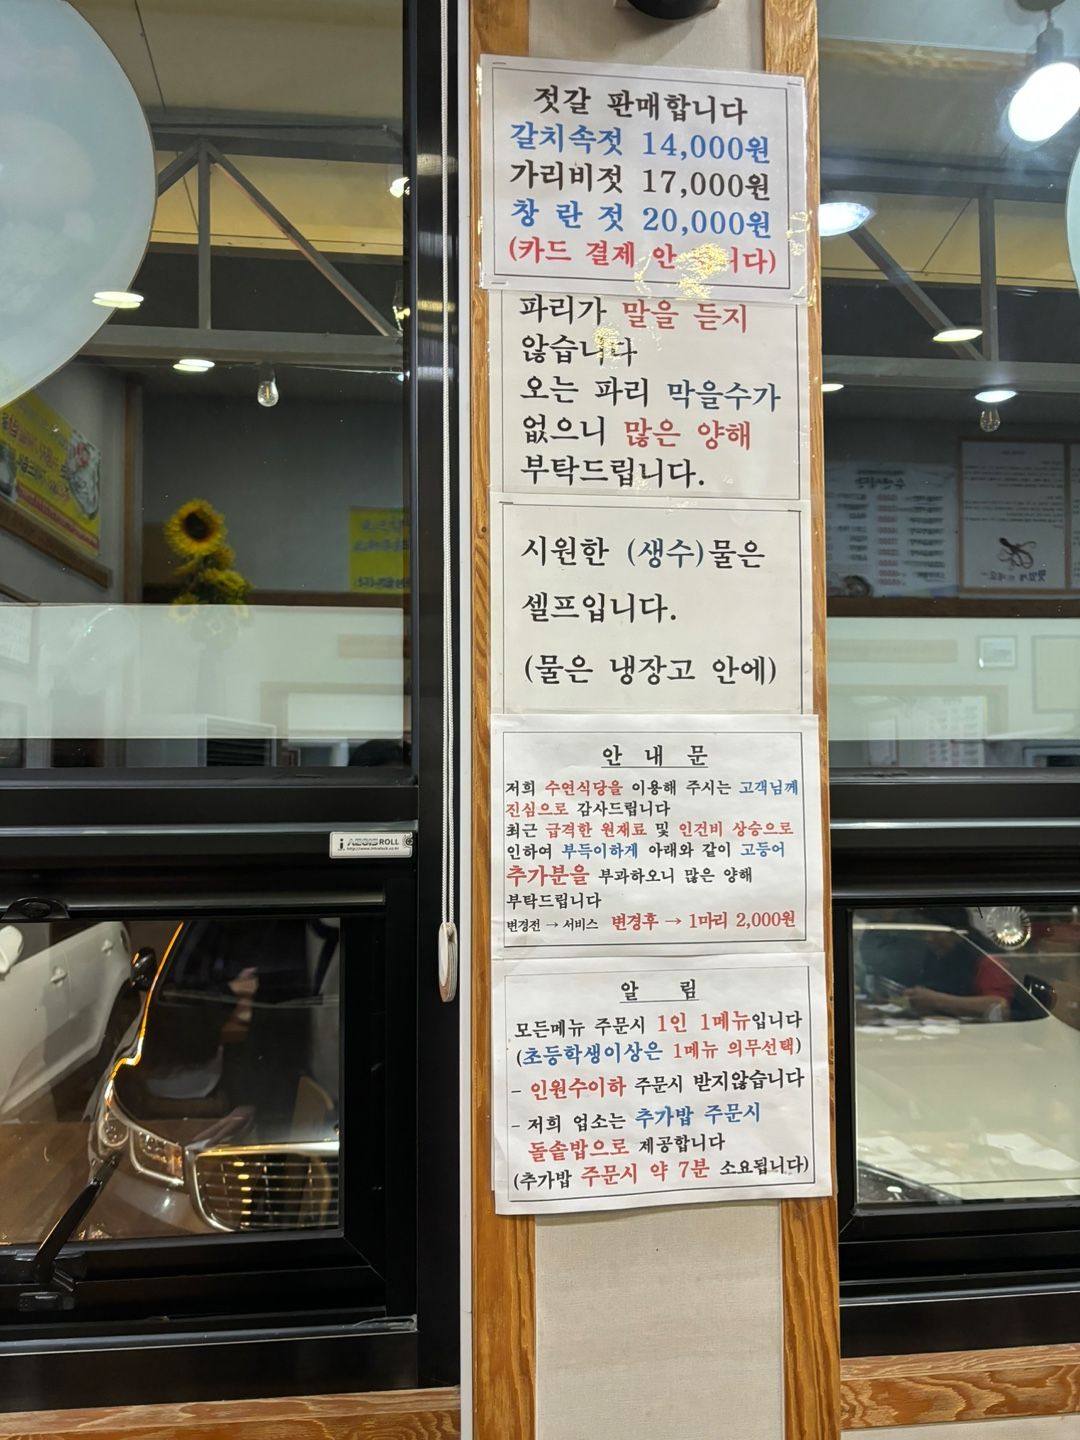 젓갈 판매합니다
갈치속젓 14,000원
가리비젓 17,000원
창 란 젓 20,000원
(카드 결제 안 니다)
파리가 말을 듣지
않습니다
오는 파리 막을수가
없으니 많은 양해
부탁드립니다.
시원한 (생수)물은
셀프입니다.
(물은 냉장고 안에)
안 내 문
저희 수연식당을 이용해 주시는 고객님께
진심으로 감사드립니다
최근 급격한 원재료 및 인건비 상승으로
인하여 부득이하게 아래와 같이 고등어
추가분을 부과하오니 많은 양해
부탁드립니다
변경전 → 서비스 변경후 → 1마리 2,000원
알 림
모든메뉴 주문시 1인 1메뉴입니다
(초등학생이상은 1메뉴 의무선택)
- 인원수이하 주문시 받지않습니다
- 저희 업소는 추가밥 주문시
돌솥밥으로 제공합니다
(추가밥 주문시 약 7분 소요됩니다)
AEGIS ROLL